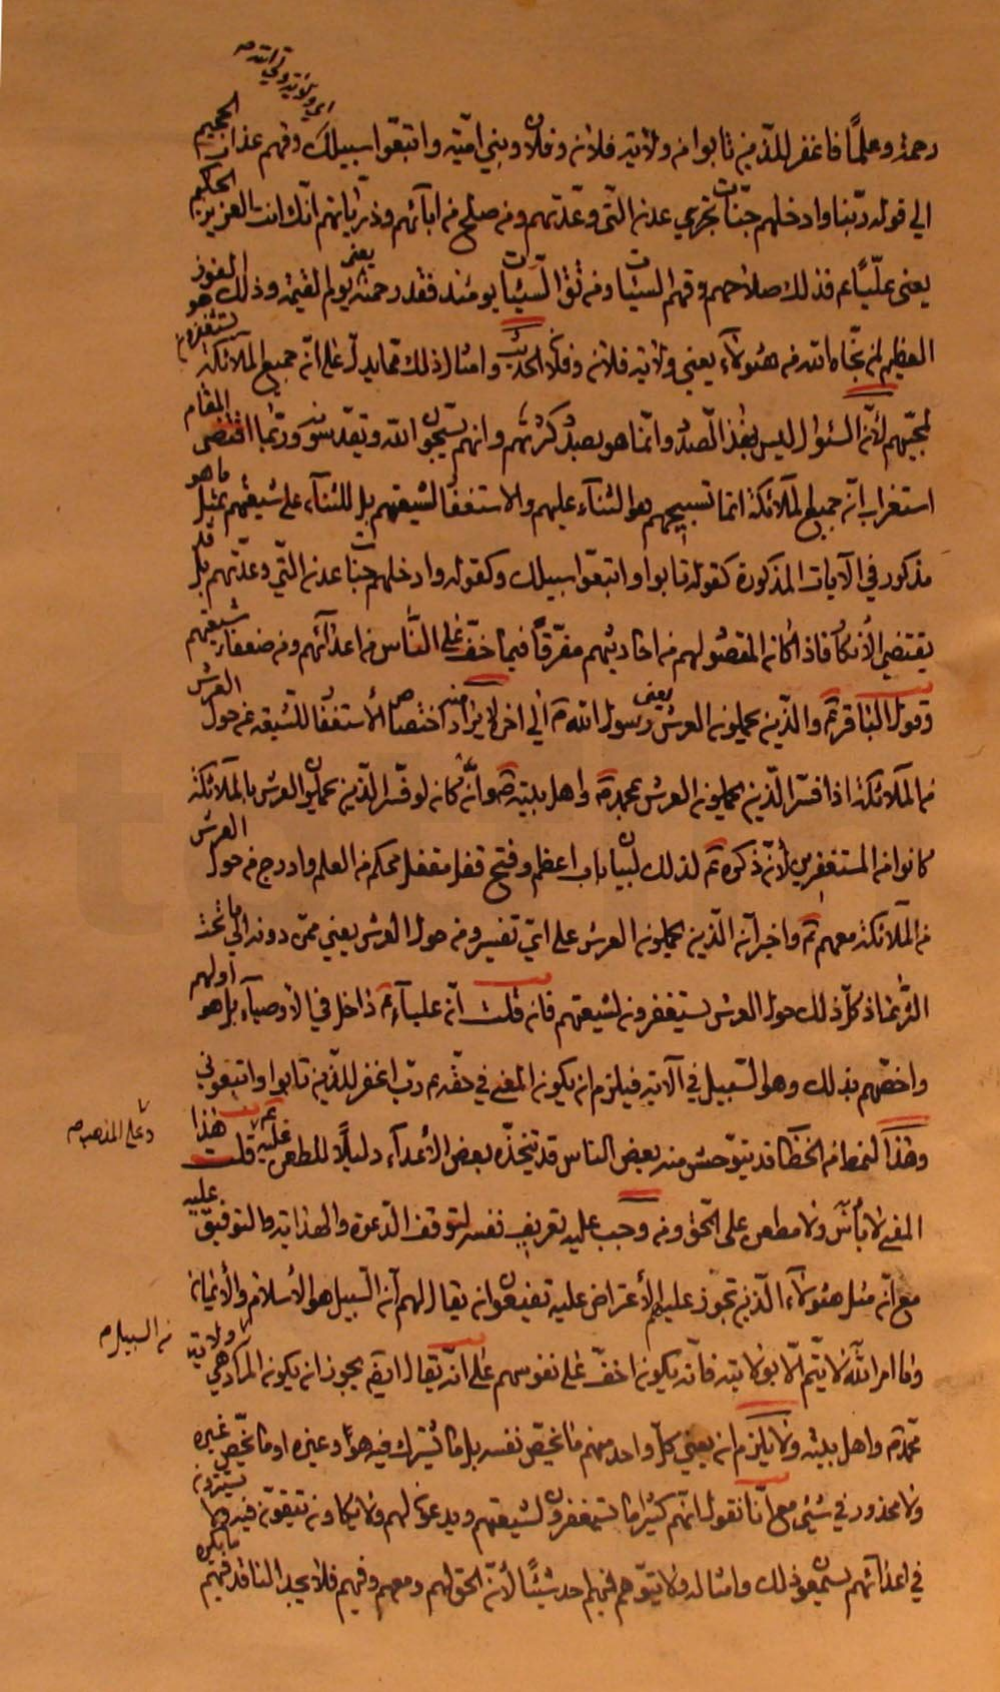 اي ولاية ولي الله
رحمة وعلماً فاغفر للذين تابوا من ولاية فلان وفلان وبني اميّة واتبعوا سبيلك وقهم عذاب الجحيم
الي قوله ربّنا وادخلهم جنّات تجري عدن التى وعدتهم ومن صلح من ابآئهم وذريّاتهم انّك انت العزيز الحكيم
يعنى عليّاً ع فذلك صلاحهم وقهم السيئات ومن تق السّيئات يومئذ فقد رحمته يعنى يوم القيمة وذلك هو الفوز
العظيم لمن نجّاه الله من هؤلآء يعني ولاية فلان وفلان الحديث وامثال ذلك ممّا يدلّ على انّ جميع الملائكة يستغفرون
لمحبّيهم لأنّ السؤال ليس بهذا الصّدد وانّما هو بصدد كثرتهم وانهم يسبّحون الله ويقدّسونه وربّما اقتضى المقام
استغراب انّ جميع الملآئكة انما تسبيحهم هو الثنآء عليهم والاستغفار لشيعتهم بل للثنآء على شيعتهم بمثل ما هو
مذكور في الآيات المذكورة كقوله تابوا واتبعوا سبيلك وكقوله وادخلهم جنات عدن التّي وعدتهم بل قد
يقتضي الأنكار فاذا كان المقصود لهم من احاديثهم مفرّقاً فيما خفّ على النّاس من اعدآئهم ومن ضعفاء شيعتهم
وقول الباقر ع والّذين يحملون العرش يعنى رسول الله ص الي اخره لا يراد منه اختصاص الأستغفار للشيعة بمن حول العرش
من الملآئكة اذا فسّر الّذين يحملون العرش بمحمد ص واهل بيته ص وانّه كان لو فسّر الّذين يحملون العرش بالملآئكة
كانوا من المستغفرين لأنّ ذكره ع لذلك لبيان باب اعظم وفتح قفل مقفل محكم من العلم وادرج من حول العرش
من الملآئكة معهم ع واخبر انّ الّذين يحملون العرش على ايّ تفسير ومن حول العرش يعني ممّن دونه الي ما تحت
الثرى اذ كلّ ذلك حول العرش يستغفرون لشيعتهم فان قلت انّ عليّاً ع داخل في الاوصيآء بل هو اولهم
واخصّهم بذلك وهو السّبيل في الآية فيلزم ان يكون المعنى في حقّه ع ربّ اغفر للذين تابوا واتبعوني
وهذا النمط من الخطاب قد يتوحّش منه بعض الناس وقد يتخذه بعض الأعدآء دليلاً للطعن عليه ع قلت هذا
وعلى المذهب
المعنى لا بأس ولا مطعن على الحق ومن وجب عليه تعريف نفسه لتوقف الدّعوة والهداية والتوفيق عليه
مع انّ مثل هؤلآء الّذين تجوز عليهم الأعتراض عليه تقنعون ان يقال لهم انّ السّبيل هو الاسلام والأيمان
من السبيل
وما امر الله لا يتمّ الّا بولايته فانّه يكون اخفّ على نفوسهم على انّه يقال ايضا يجوز ان يكون المراد هي ولاية
محمّد ص واهل بيته ولا يلزم ان يعني كلّ واحد منهم ما يخصّ نفسه بل ما يشترك فيه هو وغيره او ما يخصّ غيره
ولا محذور في شيء مع انّا نقول انّهم كثيراً ما يستغفرون لشيعتهم ويدعون لهم ولا يكادون يتّقون فيه
في اعدآئهم يسمعون ذلك وامثاله ولا يتوهم فيهم احد شيئاً لأنّ الحقّ لهم ومعهم وفيهم فلا يجد الناقد فيهم